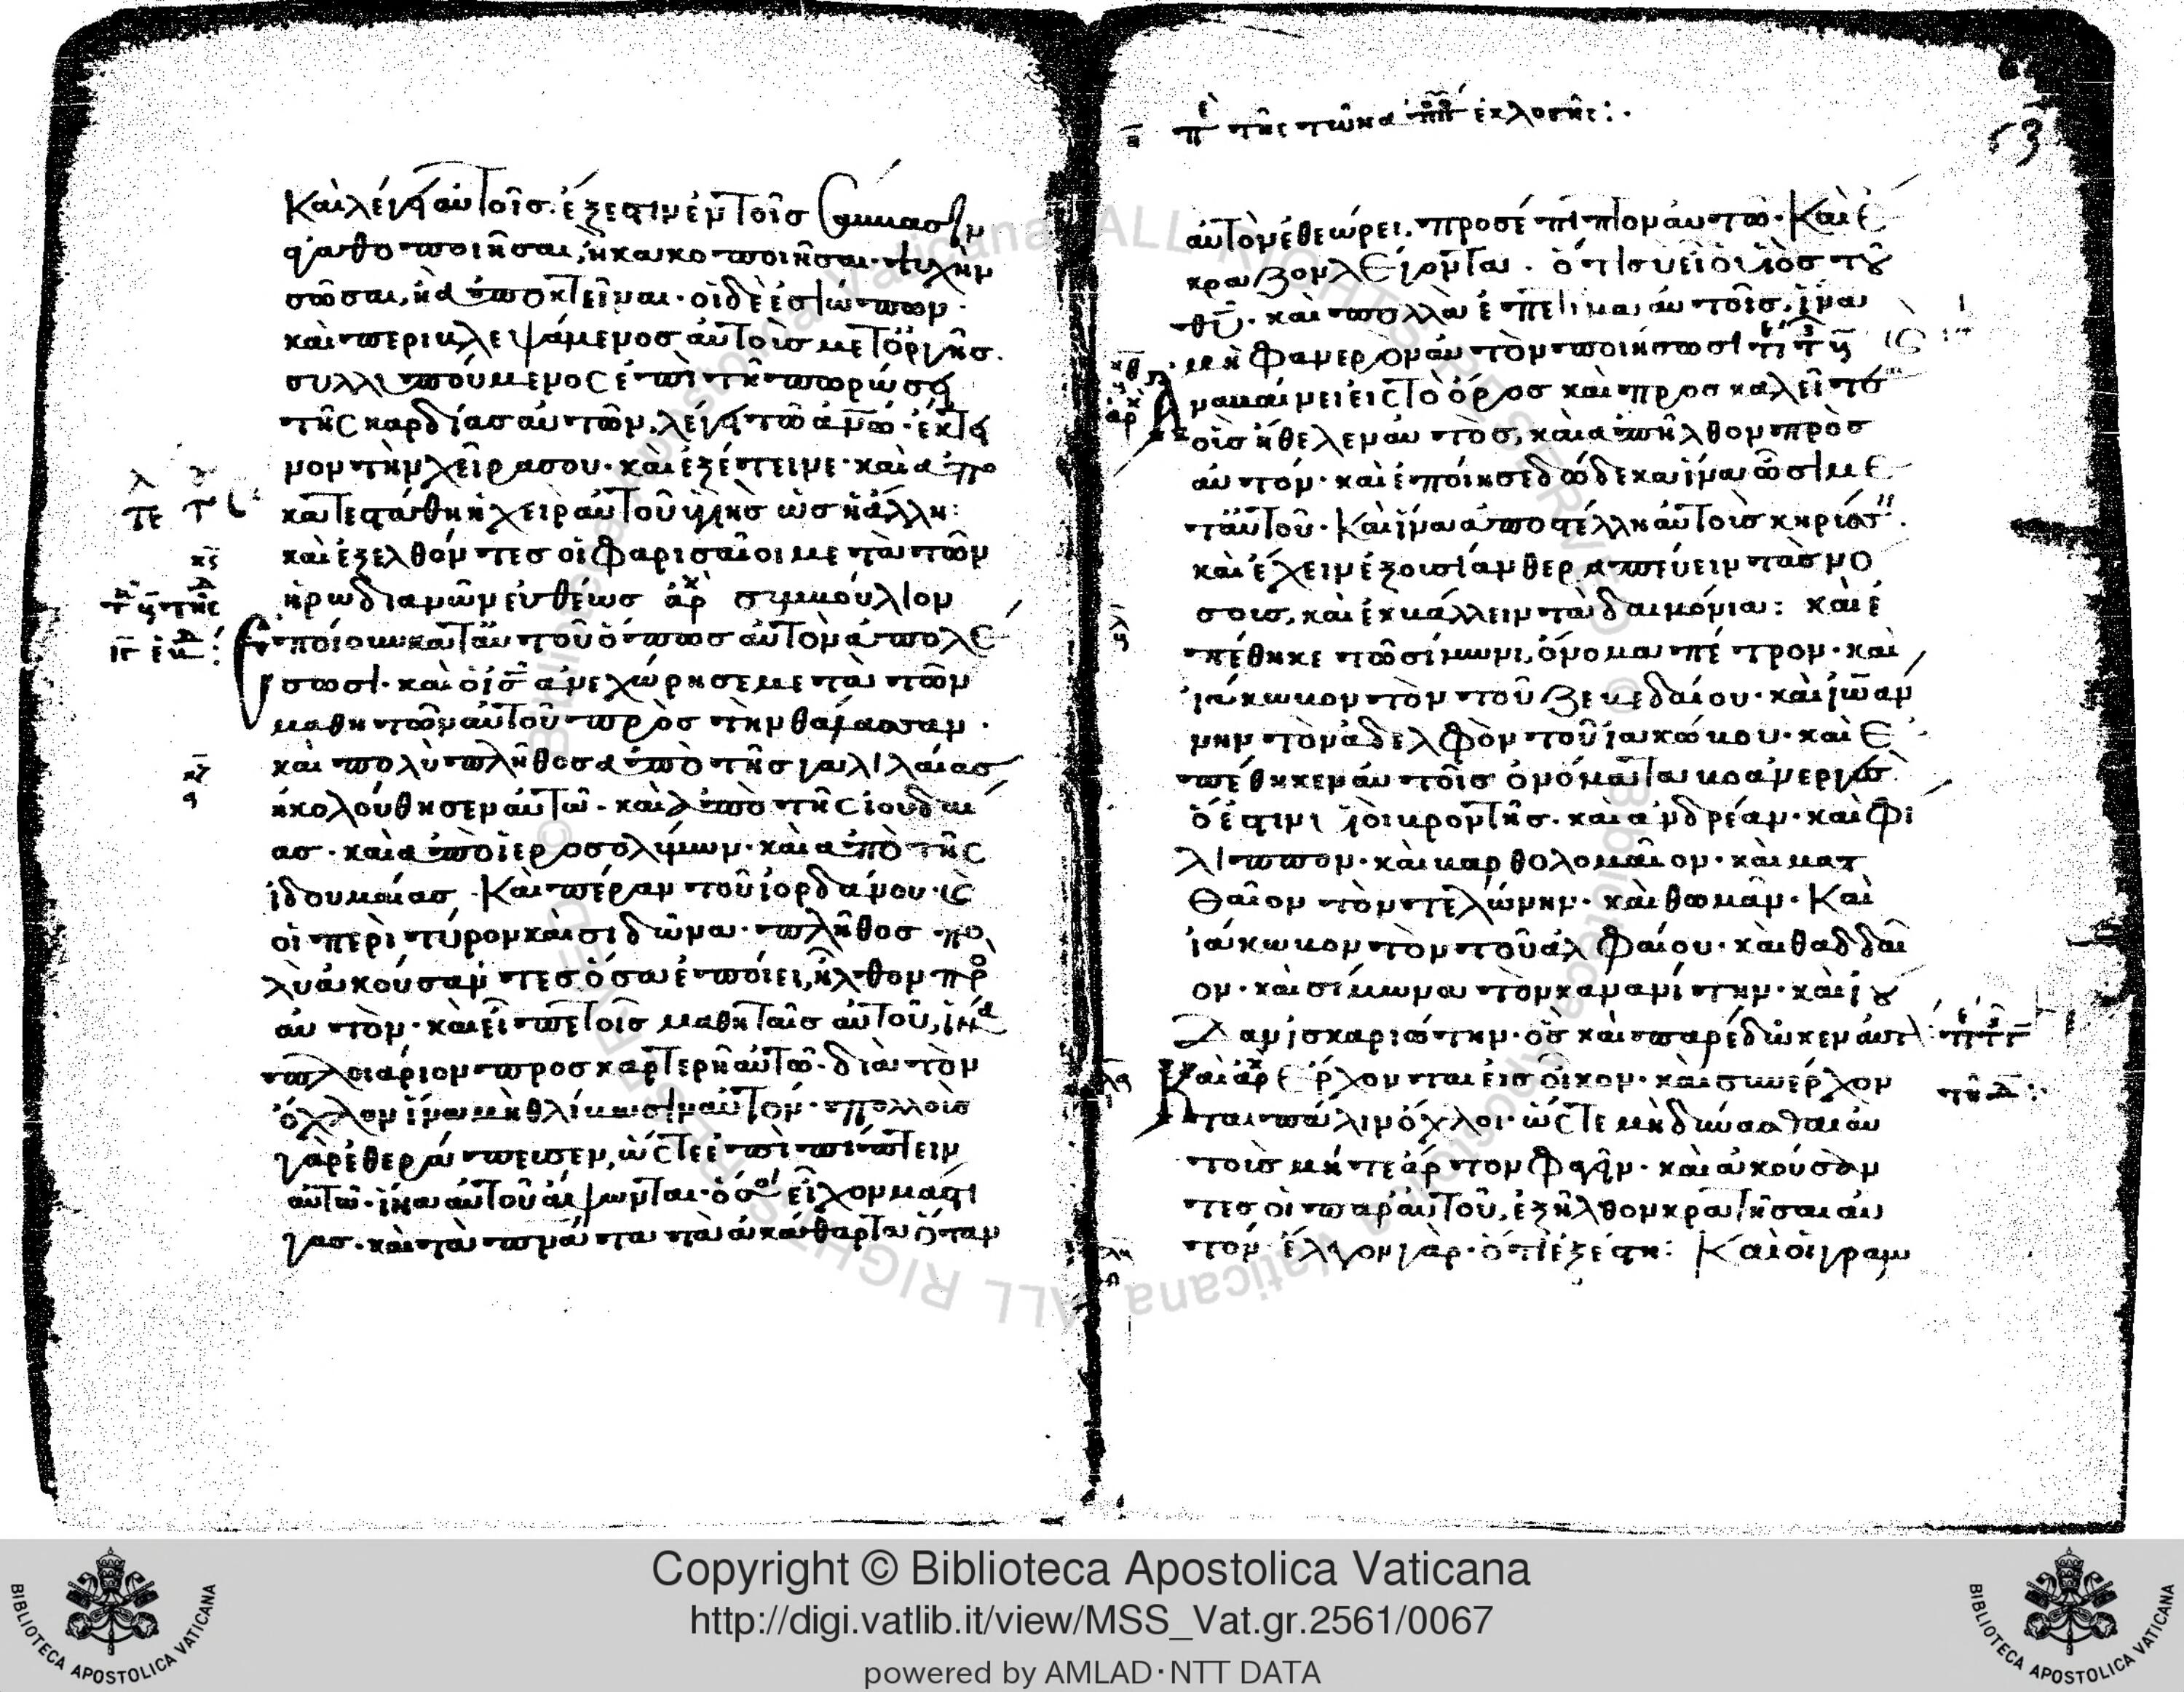 Καὶ λέγει αὐτοῖς. ἔξεστιν ἐν τοῖς σάββασιν
ἀγαθοποιῆσαι, ἢ κακοποιῆσαι. ψυχὴν
σῶσαι, ἢ ἀποκτεῖναι. οἱ δὲ ἐσιώπων.
καὶ περιβλεψάμενος αὐτοὺς μετ ὀργῆς.
συλλυπούμενος ἐπὶ τῇ πωρώσει
τῆς καρδίας αὐτῶν, λέγει τῶ ἀνω. ἔκτει
νον τὴν χεῖρα σου. καὶ ἐξέτεινε. καὶ ἀπο
κατεστάθη ἡ χεὶρ αὐτοῦ ὑγιὴς ὡς ἡ ἄλλη:
καὶ ἐξελθόντες οἱ φαρισαῖοι μετὰ τῶν
ἡρωδιανῶν εὐθέως αρχ συμβούλιον
ἐποίουν κατ αὐτοῦ ὅπως αὐτὸν ἀπολέ
σωσι. καὶ ὁ ις ἀνεχώρησε μετὰ τῶν
μαθητῶν αὐτοῦ πρὸς τὴν θάλασσαν.
καὶ πολὺ πλῆθος ἀπὸ τῆς γαλιλαίας
ἠκολούθησεν αὐτῶ. καὶ ἀπὸ τῆς ἰουδαί
ας. καὶ ἀπὸ ἱεροσολύμων. καὶ ἀπὸ τῆς
ἰδουμαίας. Καὶ πέραν τοῦ ἰορδάνου. καὶ
οἱ περὶ τύρον καὶ σιδῶνα. πλῆθος πο
λὺ ἀκούσαντες ὅσα ἐποίει, ἦλθον πρὸ
αὐτόν. καὶ εἶπε τοῖς μαθηταῖς αὐτοῦ, ἵνα
πλοιάριον προσκαρτερῆ αὐτῶ. διὰ τὸν
ὄχλον ἵνα μὴ θλίβωσιν αὐτόν. πολλοὺς
γὰρ ἐθεράπευσεν, ὥστε ἐπιπίπτειν
αὐτῶ. ἵνα αὐτοῦ ἅψωνται. ὅσοι εἶχον μάστι
γας. καὶ τὰ πνα τα τὰ ἀκάθαρτα ὅταν
63
αὐτὸν ἐθεώρει. προσέπιπτον αὐτῶ. Καὶ ἔ
κραζον λέγοντα. ὅτι σὺ εἶ ὁ υἱὸς τοῦ
θυ. καὶ πολλὰ ἐπετίμα αὐτοῖς, ἵνα
μὴ φανερὸν αὐτὸν ποιήσωσι
Ἀναβαίνει εἰς τὸ ὄρος καὶ προσκαλεῖτο
οὓς ἤθελεν αὐτὸς, καὶ ἀπῆλθον πρὸς
αὐτόν. καὶ ἐποίησε δώδεκα ἵνα ὦσι με
τ αὐτοῦ. Καὶ ἵνα ἀποστέλλη αὐτοὺς κηρύσσ.
καὶ ἔχειν ἐξουσίαν θεραπεύειν τὰς νό
σους, καὶ ἐκβάλλειν τὰ δαιμόνια: καὶ ἐ
πέθηκε τῶ σίμωνι, ὄνομα πέτρον. καὶ
ἰάκωβον τὸν τοῦ ζεβεδαίου. καὶ ἰωάν
νην τὸν ἀδελφὸν τοῦ ἰακώβου. καὶ ἐ
πέθηκεν αὐτοῖς ὀνόματα βοανεργὲς
ὅ ἐστιν υἱοὶ βροντῆς. καὶ ἀνδρέαν. καὶ φί
λιππον. καὶ βαρθολομαῖον. καὶ ματ
θαῖον τὸν τελώνην. καὶ θωμᾶν. Καὶ
ἰάκωβον τὸν τοῦ ἀλφαίου. καὶ θαδδαῖ
ον. καὶ σίμωνα τὸν κανανίτην. καὶ ἰού
δαν ἰσκαριώτην. ὃς καὶ παρέδωκεν αὐτ
Καὶ αρχ ἔρχονται εἰς οἶκον. καὶ συνέρχον
ται πάλιν ὄχλοι. ὥστε μὴ δύνασθαι αὐ
τοὺς μήτε ἄρτον φαγεῖν. καὶ ἀκούσαν
τες οἱ παρ αὐτοῦ, ἐξῆλθον κρατῆσαι αὐ
τόν ἔλεγον γὰρ. ὅτι ἐξέστη: Καὶ οἱ γραμ
Copyright © Biblioteca Apostolica Vaticana
http://digi.vatlib.it/view/MSS_Vat.gr.2561/0067
powered by AMLAD·NTT DATA
BIBLIOTECA APOSTOLICA VATICANA
BIBLIOTECA APOSTOLICA VATICANA